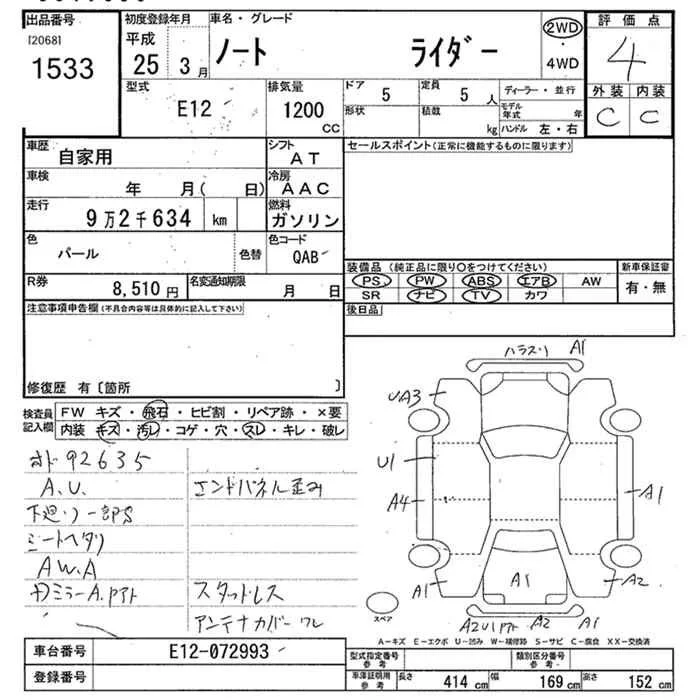 出品番号 初度登録年月 車名・グレード 2WD 評価点
[2068] 平成
1533 25 3月 ノート ライダー ・ 4WD 4
型式 排気量 ドア 5 定員 5人 ディーラー・並行 外装 内装
E12 1200 CC 形状 積載 kg モデル年式 年 C C
ハンドル 左・右
車歴 自家用 シフト AT セールスポイント(正常に機能するものに限ります)
車検 年 月( 日) 冷房 AAC
走行 9万2千634 km 燃料 ガソリン
色 パール 色替 色コード QAB
装備品 (純正品に限り○をつけてください) 新車保証書
R券 8,510円 名変通知期限 月 日 PS PW ABS エアB AW 有・無
SR ナビ TV カワ
注意事項申告欄(不具合内容等は具体的に記入して下さい) 後日品
修復歴 有〔箇所 〕
検査員記入欄 FW キズ・飛石・ヒビ割・リペア跡・×要
内装 キズ・汚レ・コゲ・穴・スレ・キレ・破レ
92635
A.U. エンドパネル歪み
下廻り一部S
シートヘタリ
AW.A
ミラーA.Pアト スタッドレス
アンテナカバーワレ
A1
UA3
U1
A4 A1
A1 A1 A2
スペア A2U1Pアト A2 A1
A-キズ E-エクボ U-凹み W-補修跡 S-サビ C-腐食 XX-交換済
車台番号 E12-072993 型式指定番号 参考 類別区分番号 参考
登録番号 車庫証明用 参考 長さ 414cm 幅 169cm 高さ 152cm